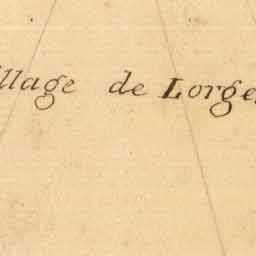 illage de Lorge